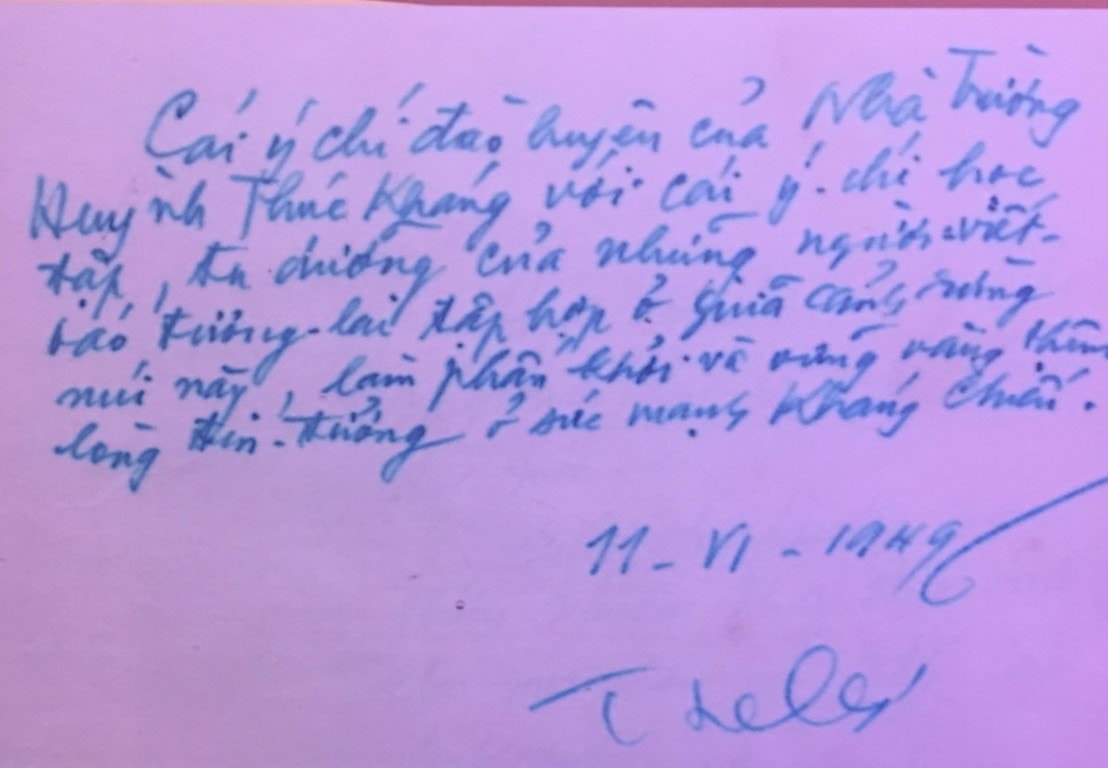 Cái ý chí đào luyện của Nhà Trường
Huỳnh Thúc Kháng với cái ý-chí học
tập, tu dưỡng của những người viết-
báo tương-lai tập hợp ở giữa cảnh rừng
núi này, làm phấn khởi và vững vàng thêm
lòng tin-tưởng ở sức mạnh Kháng Chiến.
11-VI-1949